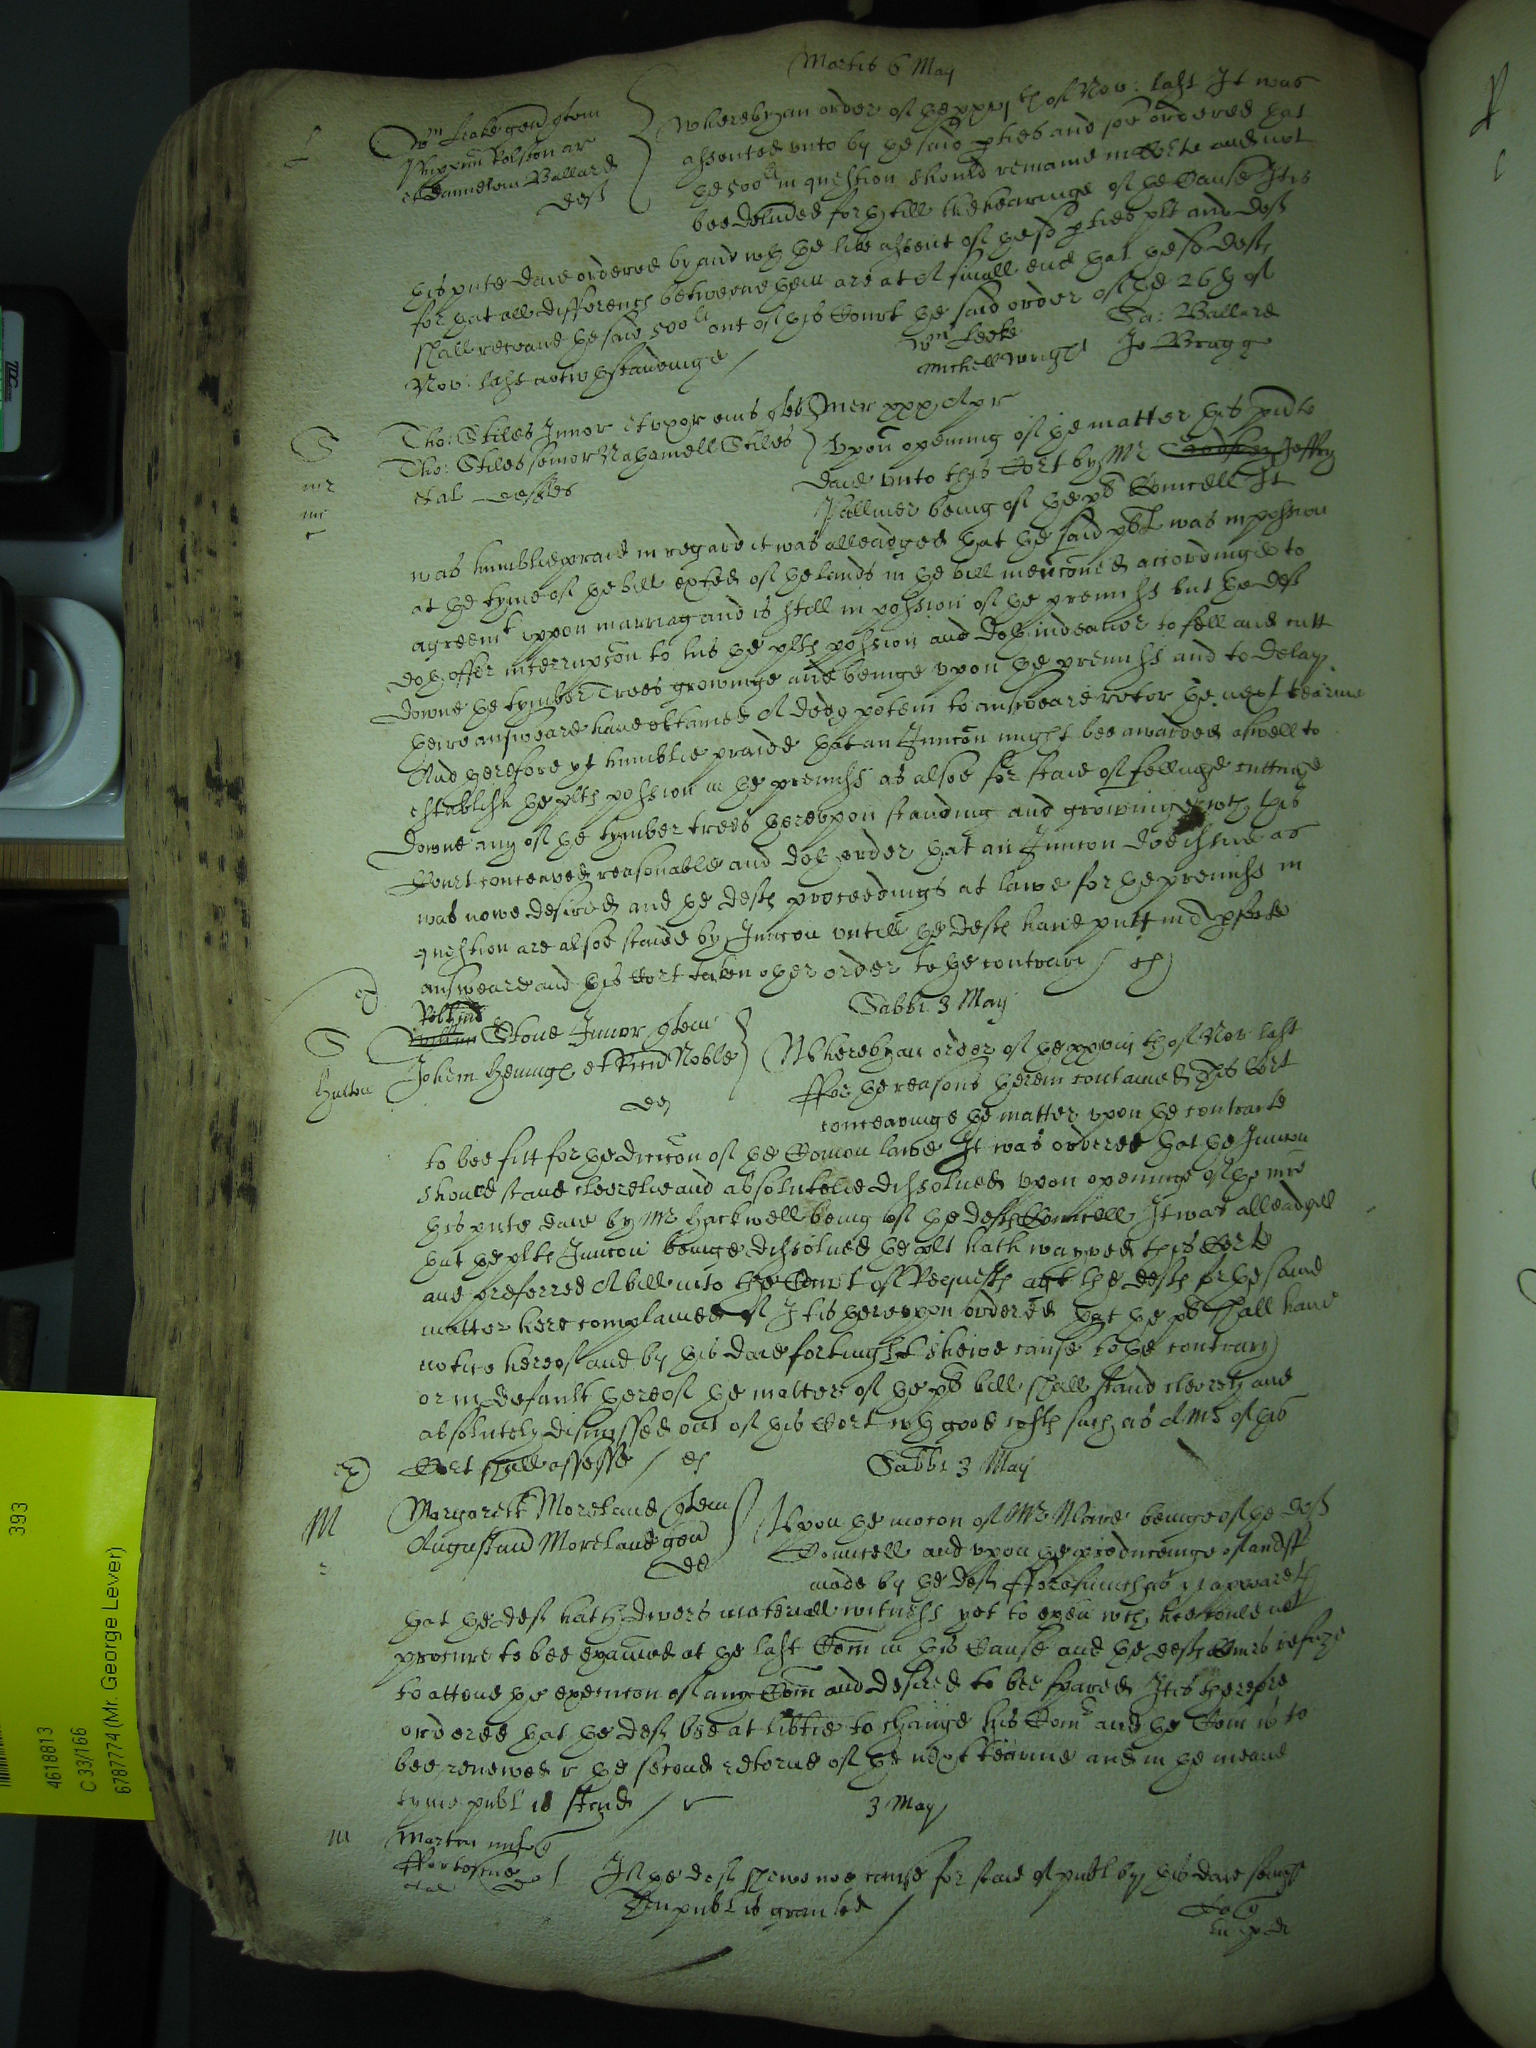 Martis 6 May
L
Wm Leake gen quem
Simon Rolston ar
et Samuelem Ballard
deft
Whereby an order of the xxvjth of Nov: last It was
assented unto by the said pties and soe ordered that
the 500li in question should remaine in Corte and not
bee deliuered forth till the hearinge of the Cause It is
this pnte daie ordered by and wth the like assent of the sd pties plt and deft
for that all differencs betweene them are at a finall end that the sd deft
shall receaue the said 500li out of this Court the said order of the 26th of
Nov: last notwthstandinge /
Wm Leeke
Sa: Ballard
Michell Wright
Jo Bragge
S
mr
mr
Tho: Stiles Junior et uxor eius qtes
Tho: Stiles senior Nathaniell Stiles
et al deftes
Mer xxx Apr
Upon opening of the matter this pnte
daie unto this Cort by Mr Jeffry
Pallmer being of the pts Councell It
was humblie praid in regard it was alleadged that the said plt was in possion
at the tyme of the bill exhited of the lands in the bill menconed accordinge to
agreemt uppon marriag and is still in possion of the premiss but the deft
doth offer interrupcon to his the plts possion and doth indeavor to fell and cutt
downe the tymber Trees growinge and beinge upon the premiss and to delay
theire answeare haue obtained A ded potem to answeare retor the next tearme
And therefore yt humblie praide that an Juncon might bee awarded aswell to
establish the plts possion in the premiss as alsoe for staie of fellinge cuttinge
downe any of the tymber trees thereupon standing and growing wch this
Court conceaved reasonable and doth order that an Juncon doe issue as
was nowe desired and the defts proceedings at lawe for the premiss in
question are alsoe staied by Juncon untill the defts haue putt in A pfecte
answeare and this Cort taken other order to the contrary / ex
ex
Sabbi 3 May
S
Hutton
Stone Junior quem
Johem Heninge et Ricm Noble
des
Whereby an order of the xxviijth of Nov last
ffor the reasons therein contained This Cort
conceavinge the matter upon the contracte
to bee fitt for the direccon of the Comon lawe It was ordered that the Juncon
should stand cleerelie and absolutelie dissolued upon openinge of the mre
this pnte daie by Mr Hackwell being of the defts Councell It was alleadged
that the plts Juncon beinge dissolued the plt hath waived this Corte
and preferred A bill into the Court of Requests agt the defts for the same
matter here complained of It is thereupon ordered that the plt shall haue
notice hereof and by this daie fortnight shewe cause to the contrary
or in default thereof the matter of the pts bill shall stand cleerely and
absolutely dismissed out of this Cort wth good costs such as A Mr of this
Cort shall assesse / ex
ex
Sabbi 3 May
M
Margarett Moreland quem
Augustin Moreland gen
de
Upon the mocon of Mr Maire beinge of the deft
Councell and upon the produceinge of an afft
made by the deft fforasmuch as yt appeareth
that the deft hath divers materiall witness yet to exam wch hee could not
procure to bee examined at the last Com in this Cause and the defts Comrs refuze
to attend the execucon of any Com and desired to bee spared It is therefore
ordered that the deft bee at libtie to change his Comrs and the Com is to
bee renewed r the second retorne of the next tearme and in the meane
tyme publ is staid / r
3 May
M
Marten
et al de
If the deft shewe noe cause for staie of publ by this daie sennight
Then publ is granted /
393
4618813
C 33/166
6787774 (Mr. George Lever)